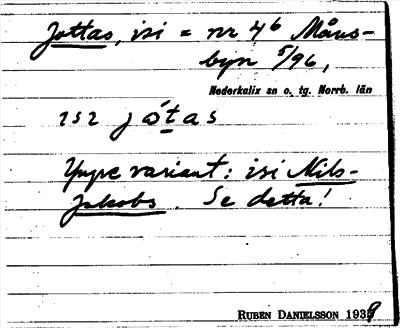 Jottas, isi = nr 46 Måns-
byn 5/96,
Nederkalix sn o. tg. Norrb. län
ısı jótas
Yngre variant: isi Nils-
Jakobs. Se detta!
RUBEN DANIELSSON 1939